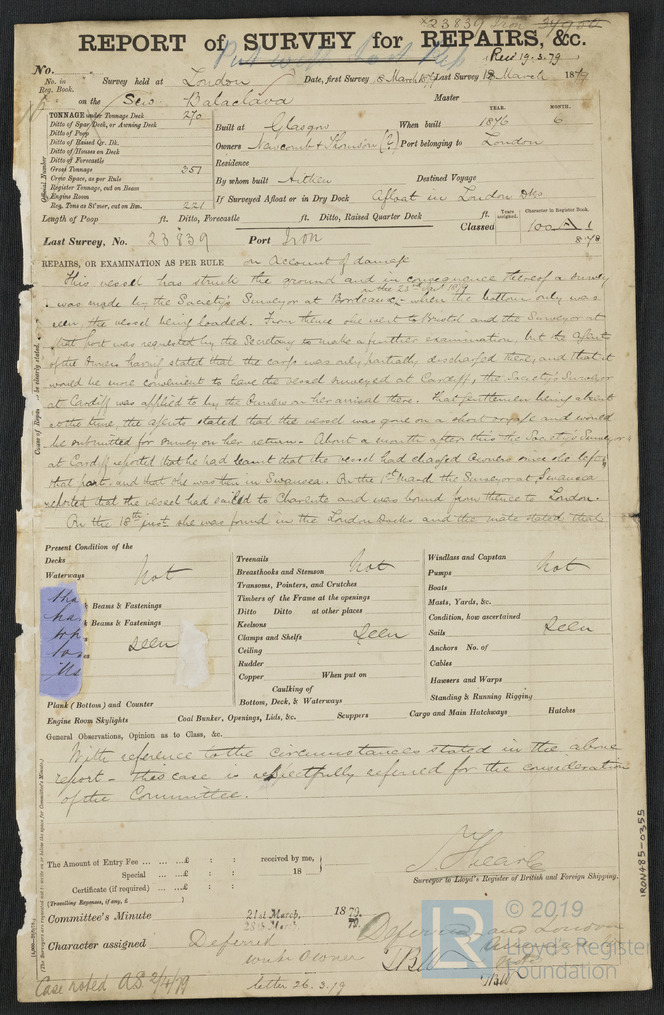 23839 Iron
REPORT of SURVEY for REPAIRS, &c.
Recd 19.3.79
No.
No. in Reg. Book.
Survey held at London Date, first Survey 8 March 1879 Last Survey 18 March 1879
on the Scw Balaclava Master
TONNAGE under Tonnage Deck 270
Ditto of Spar Deck, or Awning Deck
Ditto of Poop
Ditto of Raised Qr. Dk.
Ditto of Houses on Deck
Ditto of Forecastle
Gross Tonnage 357
Crew Space, as per Rule
Register Tonnage, cut on Beam
Engine Room
Reg. Tons as St'mer, cut on Bm. 221
Official Number
YEAR. MONTH.
Built at Glasgow When built 1876 6
Owners Newcomb & Thomson (?) Port belonging to London
Residence
By whom built Aitken Destined Voyage
If Surveyed Afloat or in Dry Dock Afloat in London Dks
Length of Poop ft. Ditto, Forecastle ft. Ditto, Raised Quarter Deck ft.
Years assigned. Character in Register Book.
Classed 100 A 1
8.78
Last Survey, No. 23839 Port Iron
REPAIRS, OR EXAMINATION AS PER RULE on Account of damage
This vessel has struck the ground and in consequence thereof a survey
was made by the Society's Surveyor at Bordeaux when the bottom only was
seen, the vessel being loaded. From thence she went to Bristol and the Surveyor at
that port was requested by the Secretary to make a further examination, but the Agent
of the Owners having stated that the cargo was only partially discharged there, and that it
would be more convenient to have the vessel surveyed at Cardiff, the Society's Surveyor
at Cardiff was applied to by the Owners on her arrival there. That gentleman being absent
at the time, the Agents stated that the vessel was gone on a short voyage and would
be submitted for survey on her return. About a month after this the Society's Surveyor
at Cardiff reported that he had learnt that the vessel had changed Owners since she left
that port, and that she was then in Swansea. On the 1st March the Surveyor at Swansea
reported that the vessel had sailed to Charente and was bound from thence to London.
On the 18th inst she was found in the London Docks and the mate stated that
Present Condition of the
Decks
Waterways Not
Beams & Fastenings
Beams & Fastenings
seen
Plank (Bottom) and Counter
Treenails
Breasthooks and Stemson Not
Transoms, Pointers, and Crutches
Timbers of the Frame at the openings
Ditto Ditto at other places
Keelsons
Clamps and Shelfs seen
Ceiling
Rudder
Copper When put on
Caulking of
Bottom, Deck, & Waterways
Windlass and Capstan
Pumps Not
Boats
Masts, Yards, &c.
Condition, how ascertained
Sails seen
Anchors No. of
Cables
Hawsers and Warps
Standing & Running Rigging
Engine Room Skylights Coal Bunker, Openings, Lids, &c. Scuppers Cargo and Main Hatchways Hatches
General Observations, Opinion as to Class, &c.
With reference to the circumstances stated in the above
report - this case is respectfully referred for the consideration
of the Committee.
The Amount of Entry Fee £ : : received by me,
Special £ : : 18
Certificate (if required) £ : :
(Travelling Expenses, if any, £ )
Surveyor to Lloyd's Register of British and Foreign Shipping.
Committee's Minute 21st March, 1879.
28th March 79.
Character assigned Deferred
with Owner
letter 26.3.79
Deferred and London
TBW
TBW
Case noted AS 2/4/79
IRON485-0355
LR
© 2019
Lloyd's Register
Foundation